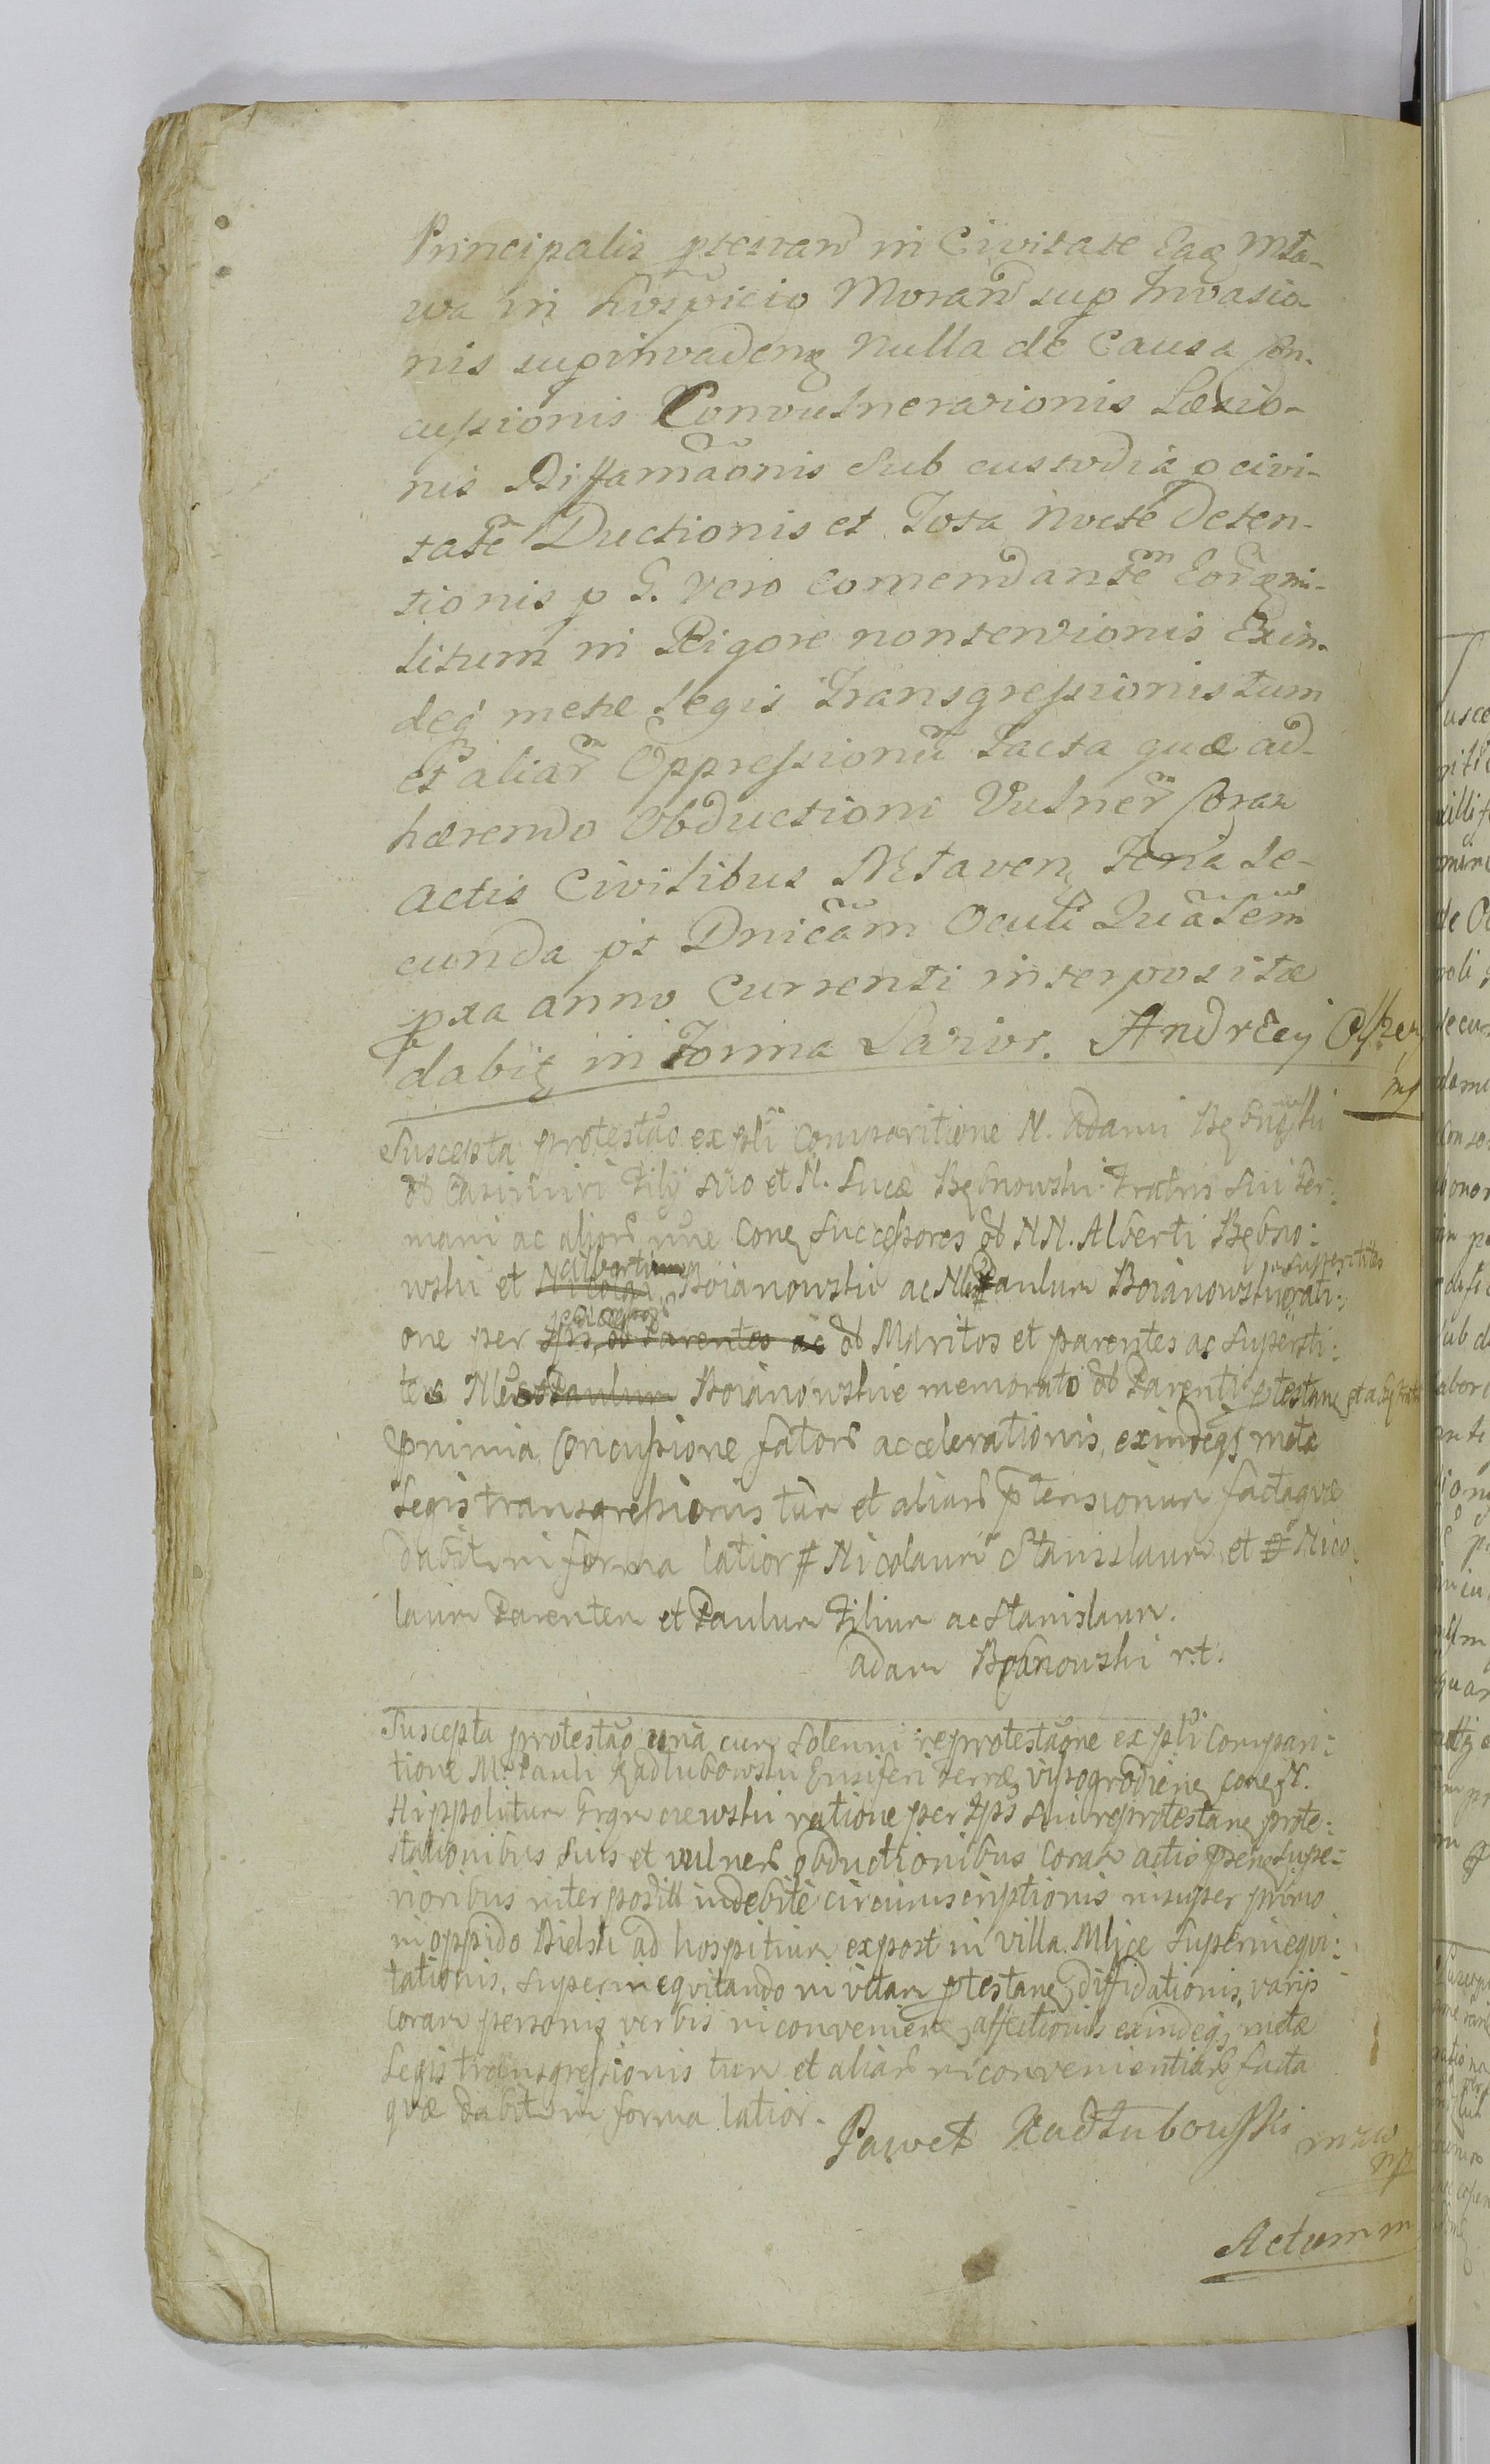 Principalis ptestan in Civitate Eaq Mła-
wa in hospicio Moran sup Invasio
nis supinvadenq Nulla de Causa con-
cussionis Convulnerationis Læsio-
nis Diffamãonis Sub custodia p civi-
tatẽ Ductionis et Tota Nocte Deten-
tionis p G. vero Comendantẽm Eordem mi-
litum in Rigore non servionis Exin-
deq metæ Legis Transgressionis tum
et aliar Oppressionũ Facta quæ ad-
hærendo Obductioni Vulner Coram
Actis Civilibus Mlaven Feria Se-
cunda pt Dnicam Oculi Quãsem
pxa anno Currenti interpositæ
dabit in Forma Latior. Andrzey
mp
Suscepta protestão ex pli Comparitione N. Adami Bębnowski
ob Casimiri Filij suo et N. Lucæ Bębnowski Fratris sui Ger:
mani ac alior une Coneq Successores ob NN. Alberti Bębno:
wski et Nicolai Albertum Boianowski ac NN Paulum Boianowski superstites rati:
one per ipsos ob Parentes ac ob Maritos et parentes ac supersti:
tes NN Paulum Boianowskie memorato ob Parenti ptestane
pnimia Concussione fator accelerationis, exindeqs metæ
Legis transgressionis tum et aliar ptensionum factaquæ
dabit in forma latior # Nicolaum Stanislaum et Nico
laum Parentem et Paulum Filium ac Stanislaum.
Adam Bębnowski r.t.
Suscepta protestão unà cum solenni reprotestãone ex pli Compari:
tione M. Pauli Kadłubowski Ensiferi Terræ Visogrodienq Cone N.
Hippolitum ratione per ips sui reprotestane prote:
stationibus suis et vulner obductionibus Coram actis psene supe:
rioribus interposit indebitè circumscriptionis insuper primo
in oppido Bielsk ad hospitium expost in villa Mlice superinequi:
tationis, superinequitando in vitam ptestane, diffidationis, varijs
coram personis verbis inconvenien affectionis exindeqs metæ
Legis transgressionis tum et aliar inconvenientiar facta
quæ dabit in forma latior.
Paweł Kadłubowski
mp
Actum in